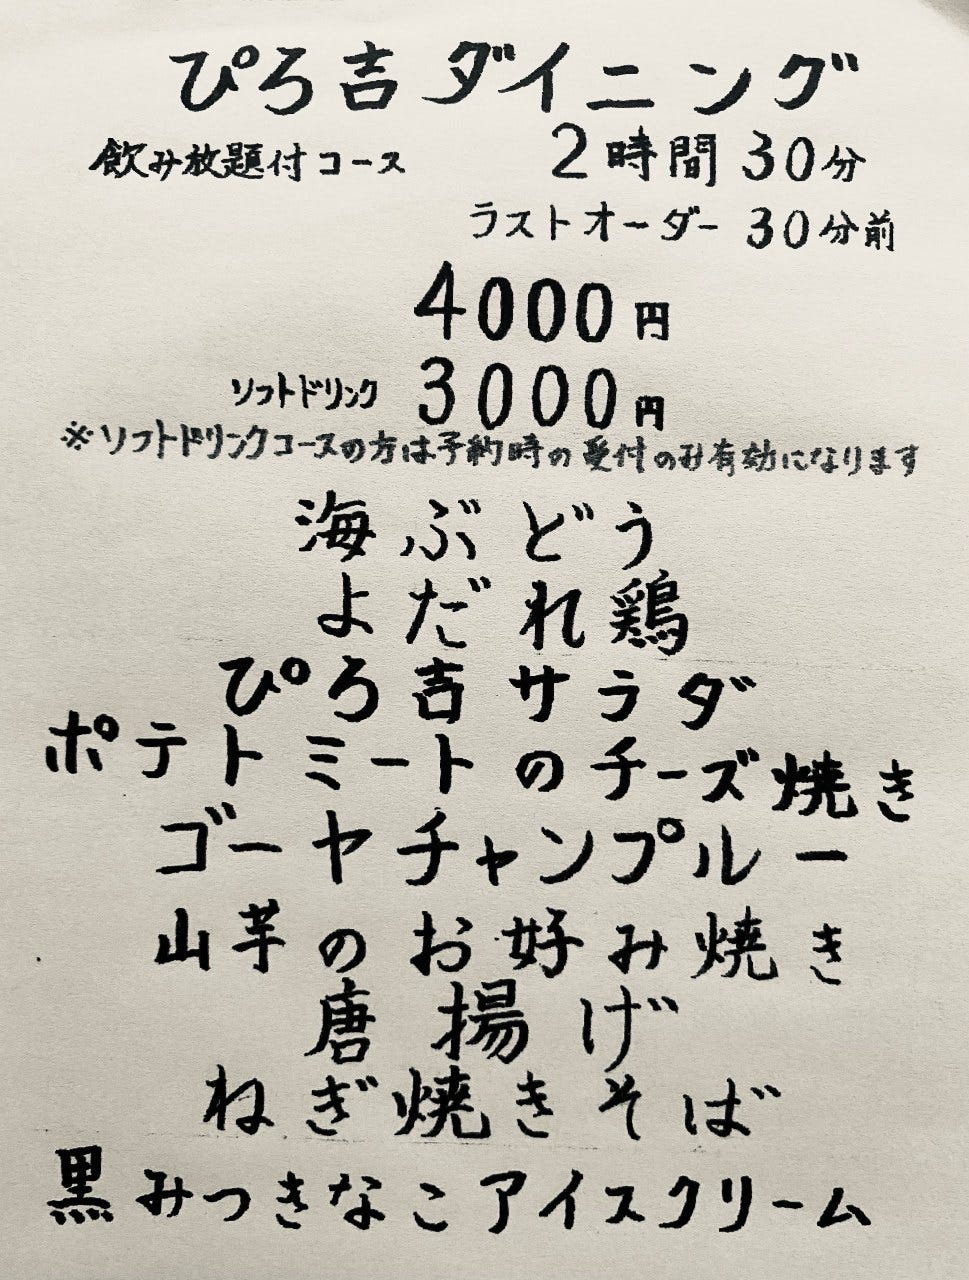 ぴろ吉ダイニング
飲み放題付コース 2時間30分
ラストオーダー 30分前
4000円
ソフトドリンク 3000円
※ソフトドリンクコースの方は予約時の受付のみ有効になります
海ぶどう
よだれ鶏
ぴろ吉サラダ
ポテトミートのチーズ焼き
ゴーヤチャンプルー
山芋のお好み焼き
唐揚げ
ねぎ焼きそば
黒みつきなこアイスクリーム